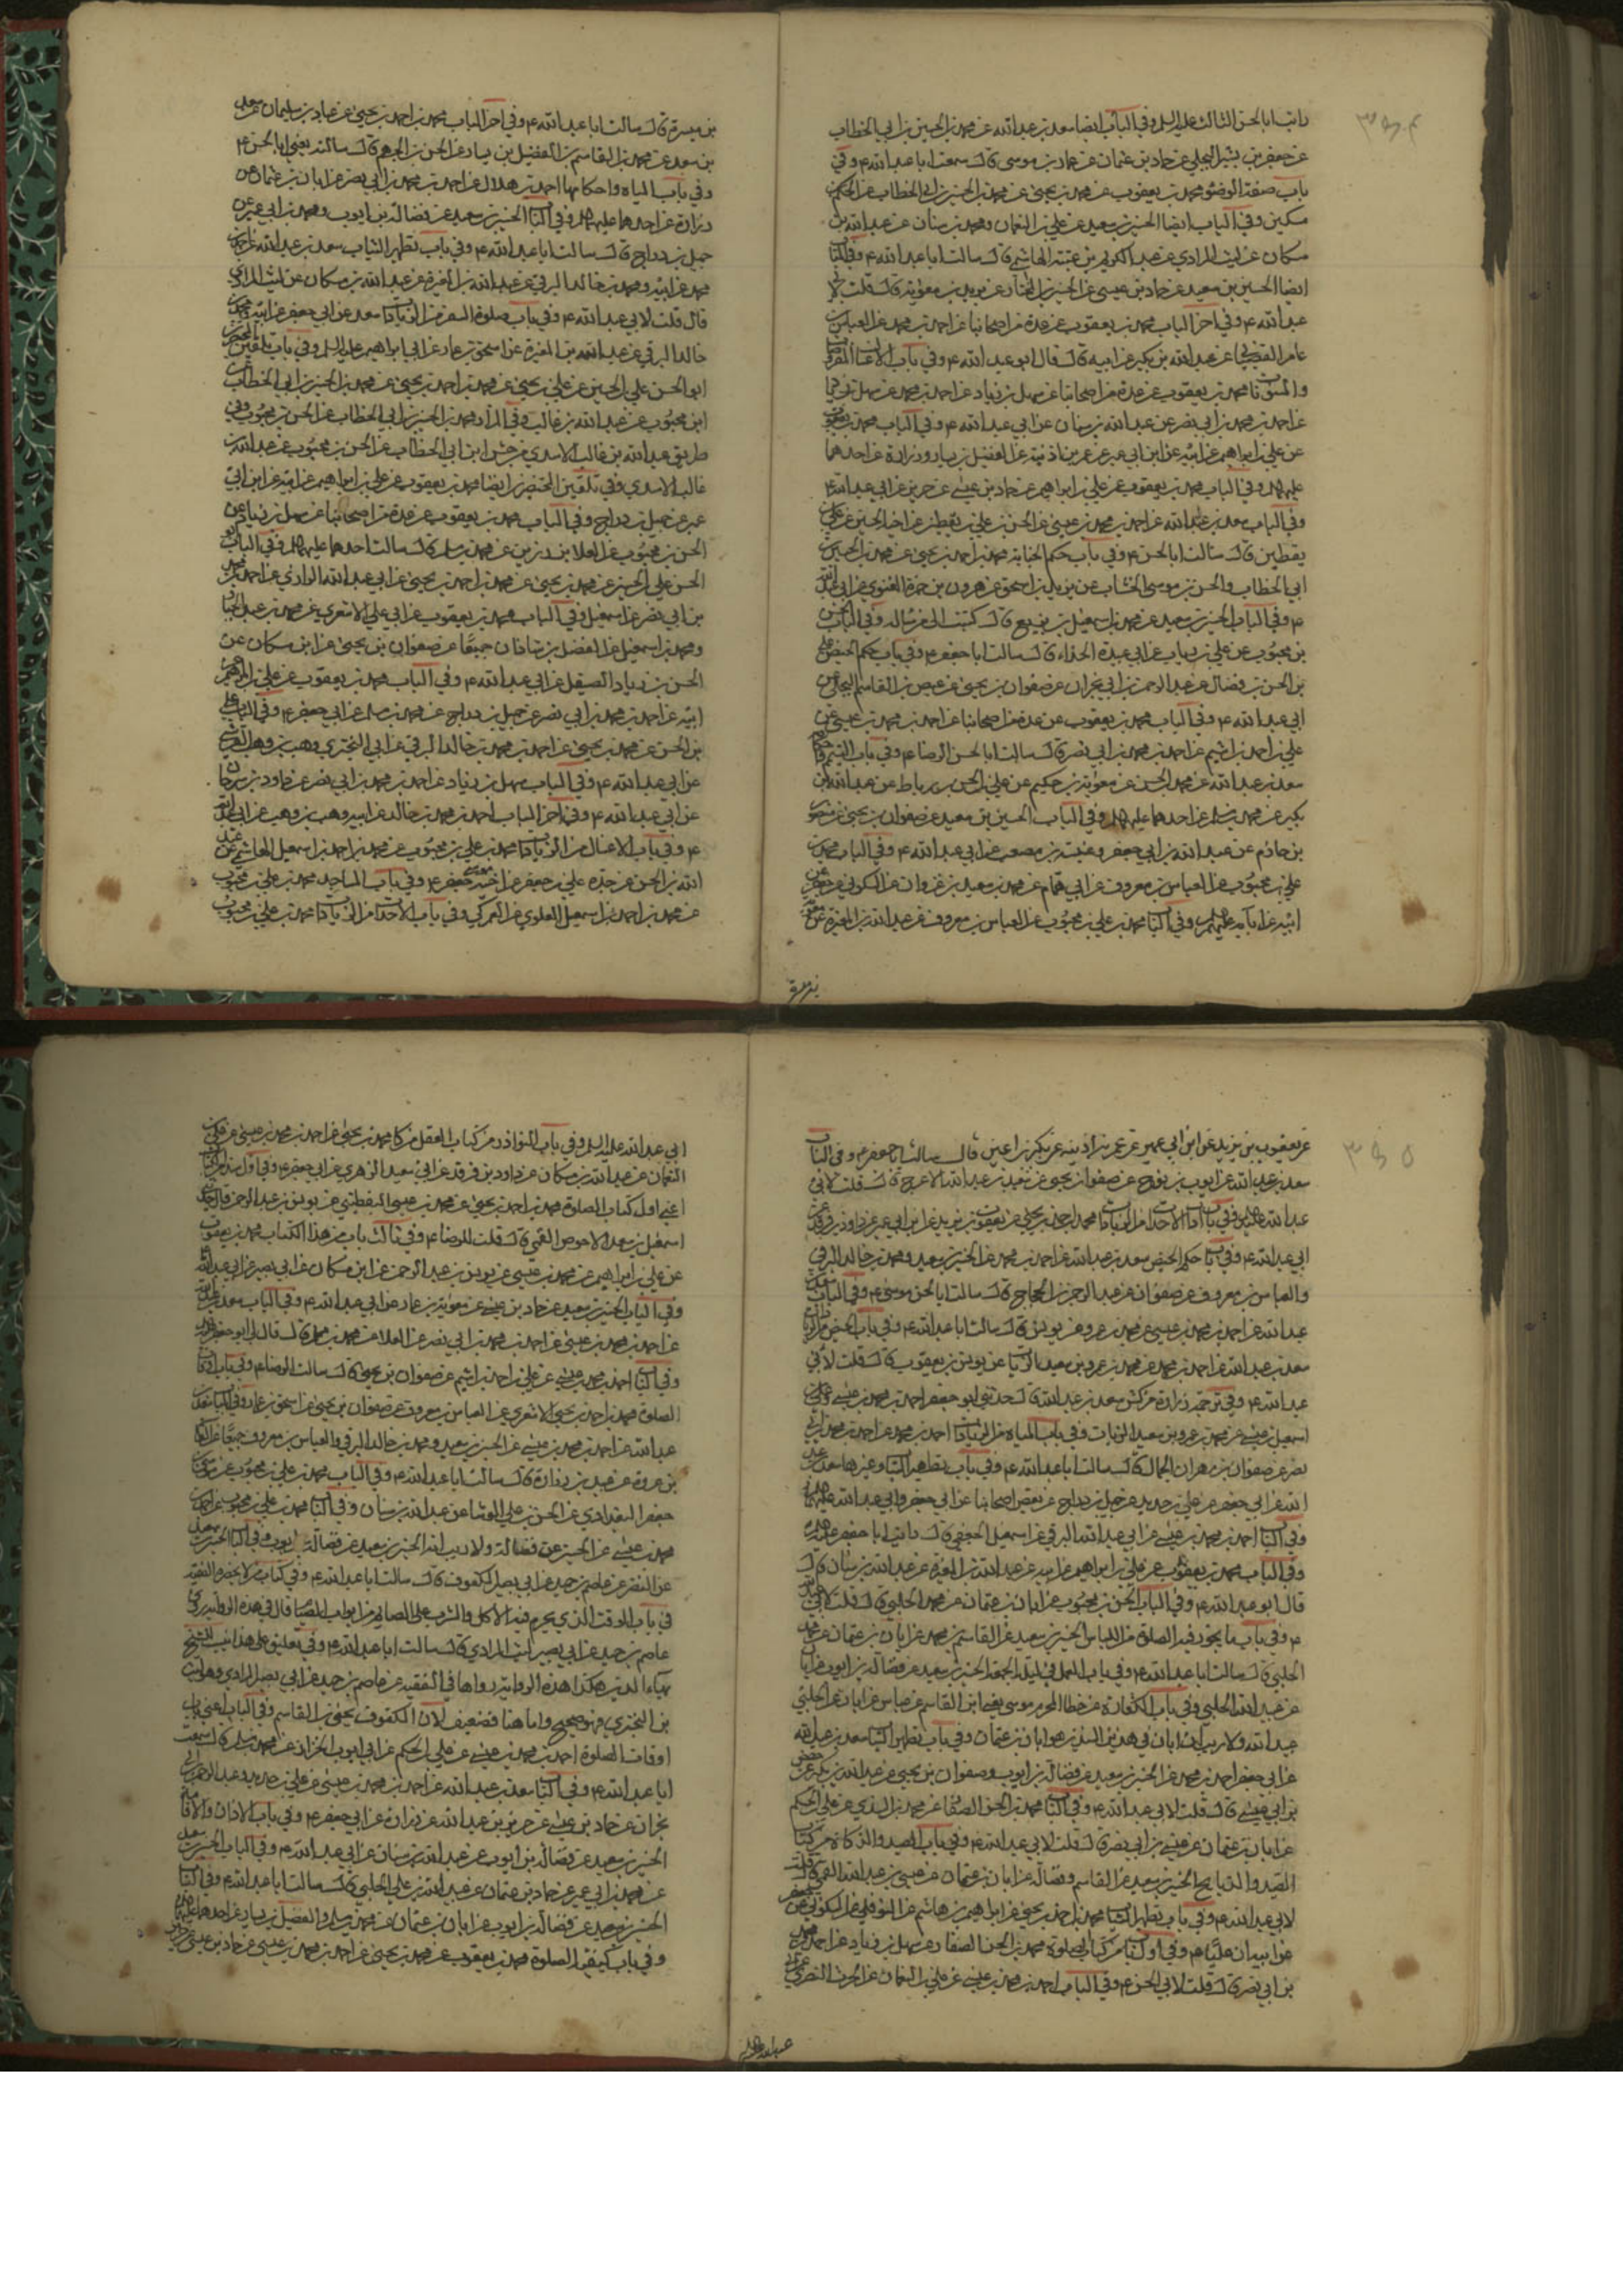 رايت ابا الحسن الثالث عليه السلم وفي الباب ايضا سعد بن عبد الله عن محمد بن الحسين بن ابي الخطاب
عن جعفر بن بشير البجلي عن حماد بن عثمان عن عمار بن موسى قال سمعت ابا عبد الله ع وفي
باب صفة الوضوء محمد بن يعقوب عن محمد بن يحيى عن محمد بن الحسين بن ابي الخطاب عن الحكم بن
مسكين وفي الباب ايضا الحسين بن سعيد عن علي بن النعمان ومحمد بن سنان عن عبد الله بن
مسكان عن ليث المرادي عن عبد الكريم بن عتبة الهاشمي قال سالت ابا عبد الله ع وفي الباب
ايضا الحسين بن سعيد عن حماد بن عيسى عن الحسين بن المختار عن معوية قال قلت لابي
عبد الله ع وفي اخر الباب محمد بن يعقوب عن عدة من اصحابنا عن احمد بن محمد عن العباس بن
عامر القصباني عن عبد الله بن بكير عن ابيه قال قال ابو عبد الله ع وفي باب الاغسال المفروضات
والمسنونات محمد بن يعقوب عن عدة من اصحابنا عن سهل بن زياد عن احمد بن محمد عن سهل بن زياد
عن احمد بن محمد بن ابي نصر عن عبد الله بن سنان عن ابي عبد الله ع وفي الباب محمد بن يعقوب
عن علي بن ابراهيم عن ابيه عن ابن ابي عمير عن عمر بن اذينة عن الفضيل بن يسار وزرارة عن احدهما
عليهما السلم وفي الباب محمد بن يعقوب عن علي بن ابراهيم عن حماد بن عيسى عن حريز عن ابي عبد الله ع
وفي الباب سعد بن عبد الله عن احمد بن محمد بن عيسى عن الحسن بن علي بن يقطين عن اخيه الحسين عن علي بن
يقطين قال سالت ابا الحسن ع وفي باب حكم الجنابة محمد بن احمد بن يحيى عن محمد بن الحسين بن
ابي الخطاب والحسن بن موسى الخشاب عن يزيد بن اسحق عن هرون بن حمزة الغنوي عن ابي عبد الله
ع وفي الباب الحسين بن سعيد عن محمد بن اسمعيل بن بزيع قال كتبت الى من ساله وفي الباب الحسن
بن محبوب عن علي بن رباب عن ابي عبيدة الحذاء قال سالت ابا جعفر ع وفي باب حكم الحيض علي
بن الحسن بن فضال عن عبد الرحمن بن ابي نجران عن صفوان بن يحيى عن عيص بن القاسم البجلي عن
ابي عبد الله ع وفي الباب محمد بن يعقوب عن عدة من اصحابنا عن احمد بن محمد بن عيسى عن
علي بن احمد بن اشيم عن احمد بن محمد بن ابي نصر قال سالت ابا الحسن الرضا ع وفي باب التيمم
سعد بن عبد الله عن محمد بن الحسين عن معوية بن حكيم عن علي بن الحسن بن رباط عن عبد الله بن
بكير عن محمد بن مسلم عن احدهما عليهما السلم وفي الباب الحسين بن سعيد عن صفوان بن يحيى عن منصور
بن حازم عن عبد الله بن ابي جعفر وعنبسة بن مصعب عن ابي عبد الله ع وفي الباب محمد بن
علي بن محبوب عن العباس بن معروف عن ابي همام عن محمد بن سعيد بن غزوان عن السكوني عن جعفر عن
ابيه عن ابائه عليهم السلم وفي الباب محمد بن علي بن محبوب عن العباس بن معروف عن عبد الله بن المغيرة عن معوية
بن ميسرة
بن ميسرة قال سالت ابا عبد الله ع وفي اخر الباب محمد بن احمد بن يحيى عن عباد بن سليمان عن سعد
بن سعد عن محمد بن القاسم بن الفضيل بن يسار عن الحسن بن الجهم قال سالته يعني ابا الحسن ع
وفي باب المياه واحكامها احمد بن هلال عن احمد بن محمد بن ابي نصر عن ابان بن عثمان عن
زرارة عن احدهما عليهما السلم وفي الباب الحسين بن سعيد عن فضالة بن ايوب ومحمد بن ابي عمير عن
جميل بن دراج قال سالت ابا عبد الله ع وفي باب تطهير الثياب سعد بن عبد الله عن احمد بن
محمد عن ابيه ومحمد بن خالد البرقي عن عبد الله بن المغيرة عن عبد الله بن مسكان عن ليث المرادي
قال قلت لابي عبد الله ع وفي باب صلوة السفر من الزيادات سعد عن ابي جعفر عن ابيه ومحمد بن
خالد البرقي عن عبد الله بن المغيرة عن اسحق بن عمار عن ابي ابراهيم عليه السلم وفي باب تلقين المحتضرين
ابو الحسن علي بن الحسين عن علي بن يحيى عن محمد بن احمد بن يحيى عن محمد بن الحسين بن ابي الخطاب عن
ابن محبوب عن عبد الله بن غالب وفي المزار محمد بن الحسين بن ابي الخطاب عن الحسن بن محبوب وفي
طريق عبد الله بن غالب الاسدي من جش ابن ابي الخطاب عن الحسن بن محبوب عن عبد الله بن
غالب الاسدي وفي تلقين المحتضرين ايضا محمد بن يعقوب عن علي بن ابراهيم عن ابيه عن ابن ابي
عمير عن جميل بن دراج وفي الباب محمد بن يعقوب عن عدة من اصحابنا عن سهل بن زياد عن
الحسن بن محبوب عن العلا بن رزين عن محمد بن مسلم قال سالت احدهما عليهما السلم وفي الباب ابو
الحسن علي بن الحسين عن محمد بن يحيى عن محمد بن احمد بن يحيى عن ابي عبد الله الرازي عن احمد بن محمد
بن ابي نصر عن اسمعيل وفي الباب محمد بن يعقوب عن ابي علي الاشعري عن محمد بن عبد الجبار
ومحمد بن اسمعيل عن الفضل بن شاذان جميعا عن صفوان بن يحيى عن ابن مسكان عن
الحسن بن زياد الصيقل عن ابي عبد الله ع وفي الباب محمد بن يعقوب عن علي بن ابراهيم عن
ابيه عن احمد بن محمد بن ابي نصر عن جميل بن دراج عن محمد بن مسلم عن ابي جعفر ع وفي الباب علي
بن الحسين عن محمد بن يحيى عن احمد بن محمد بن خالد البرقي عن ابي البختري وهب بن وهب القرشي
عن ابي عبد الله ع وفي الباب سهل بن زياد عن احمد بن محمد بن ابي نصر عن داود بن سرحان
عن ابي عبد الله ع وفي اخر الباب احمد بن محمد بن خالد عن ابيه وهب بن وهب عن ابي عبد الله
ع وفي باب الاغسال من الزيادات محمد بن علي بن محبوب عن محمد بن احمد بن اسمعيل الهاشمي عن عبد
الله بن الحسن عن جده علي بن جعفر عن اخيه موسى بن جعفر ع وفي باب المساجد محمد بن علي بن محبوب
عن محمد بن احمد بن اسمعيل العلوي عن العمركي وفي باب الاحداث من الزيادات محمد بن علي بن محبوب
٣٥٥
عن يعقوب بن يزيد عن ابن ابي عمير عن عمر بن اذينه عن بكير بن اعين قال سالت ابا جعفر ع وفي الباب
سعد بن عبد الله عن ايوب بن نوح عن صفوان بن يحيى عن سعيد بن عبد الله الاعرج قال قلت لابي
عبد الله ع وفي باب اداب الاحداث من الزيادات محمد بن احمد بن يحيى عن يعقوب بن يزيد عن ابن ابي عمير عن داود بن فرقد عن
ابي عبد الله ع وفي باب حكم الحيض سعد بن عبد الله عن احمد بن محمد عن الحسين بن سعيد ومحمد بن خالد البرقي
والعباس بن معروف عن صفوان عن عبد الرحمن بن الحجاج قال سالت ابا الحسن موسى ع وفي الباب سعد بن
عبد الله عن احمد بن محمد بن عيسى عن محمد بن عمرو عن يونس قال سالت ابا عبد الله ع وفي باب الحيض من الزيادات
سعد بن عبد الله عن احمد بن محمد عن محمد بن عمرو بن سعيد الزيات عن يونس بن يعقوب قال قلت لابي
عبد الله ع وفي ترجمة زرارة من كش سعد بن عبد الله قال حدثني ابو جعفر احمد بن محمد بن عيسى وعلي بن
اسمعيل بن عيسى عن محمد بن عمرو بن سعيد الزيات وفي باب المياه من الزيادات احمد بن محمد عن احمد بن محمد بن ابي
نصر عن صفوان بن مهران الجمال قال سالت ابا عبد الله ع وفي باب تطهير الثياب وغيرها سعد بن عبد
الله عن ابي جعفر عن علي بن حديد عن جميل بن دراج عن بعض اصحابنا عن ابي جعفر وابي عبد الله عليهما السلم
وفي الباب احمد بن محمد بن عيسى عن ابي عبد الله البرقي عن اسمعيل الجعفي قال رايت ابا جعفر عليه السلم
وفي الباب محمد بن يعقوب عن علي بن ابراهيم عن ابيه عن عبد الله بن المغيرة عن عبد الله بن سنان قال
قال ابو عبد الله ع وفي الباب الحسن بن محبوب عن ابان بن عثمان عن محمد الحلبي قال قلت لابي عبد الله
ع وفي باب ما يجوز فيه الصلوة من اللباس الحسين بن سعيد عن القاسم بن محمد عن ابان بن عثمان عن محمد
الحلبي قال سالت ابا عبد الله ع وفي باب العمل في ليلة الجمعة الحسين بن سعيد عن فضالة بن ايوب عن ابان
عن عبيد الله الحلبي وفي باب الكفارة عن خطا المحرم موسى يعني ابن القاسم عن عباس عن ابان عن الحلبي
عبيد الله ولا ريب ان ابان في هذين السندين هو ابان بن عثمان وفي باب تطهير الثياب سعد بن عبد الله
عن ابي جعفر احمد بن محمد عن الحسين بن سعيد عن فضالة بن ايوب وصفوان بن يحيى عن عبد الله بن بكير عن حفص
بن ابي عيسى قال قلت لابي عبد الله ع وفي الباب محمد بن الحسن الصفار عن محمد بن السندي عن علي بن الحكم
عن ابان بن عثمان عن عيسى بن ابي نصرة قال قلت لابي عبد الله ع وفي باب الصيد والذكاة من كتاب
الصيد والذبايح الحسين بن سعيد عن القاسم وفضالة عن ابان بن عثمان عن عيسى بن عبد الله القمي قال قلت
لابي عبد الله ع وفي باب تطهير الثياب محمد بن احمد بن يحيى عن ابراهيم بن هاشم عن النوفلي عن السكوني عن جعفر
عن ابيه ان عليا ع وفي اول باب من كتاب الصلوة محمد بن الحسن الصفار عن سهل بن زياد عن احمد بن محمد
بن ابي نصر قال قلت لابي الحسن ع وفي الباب احمد بن محمد بن عيسى عن علي بن النعمان عن الحرث النصري عن
ابي عبد الله عليه السلم وفي باب النوادر من كتاب العقل من كا محمد بن يحيى عن احمد بن محمد بن عيسى عن علي بن
النعمان عن عبد الله بن مسكان عن داود بن فرقد عن ابي سعيد الزهري عن ابي جعفر ع وفي اول
اعني اول كتاب الصلوة محمد بن احمد بن يحيى عن محمد بن عيسى اليقطيني عن يونس بن عبد الرحمن قال حدثني
اسمعيل بن سعد الاحوص القمي قال قلت للرضا ع وفي ثالث باب من هذا الكتاب محمد بن يعقوب
عن علي بن ابراهيم عن محمد بن عيسى عن يونس بن عبد الرحمن عن ابن مسكان عن ابي بصير عن ابي عبد الله
وفي الباب الحسين بن سعيد عن حماد بن عيسى عن معوية بن عمار عن ابي عبد الله ع وفي الباب سعد بن عبد الله
عن احمد بن محمد بن عيسى عن احمد بن محمد بن ابي نصر عن العلا عن محمد بن مسلم قال قال لي ابو جعفر ع
وفي الباب احمد بن محمد بن عيسى عن علي بن احمد بن اشيم عن صفوان بن يحيى قال سالت الرضا ع وفي باب اوقات
الصلوة محمد بن احمد بن يحيى الاشعري عن العباس بن معروف عن صفوان بن يحيى عن اسحق بن عمار وفي الباب سعد بن
عبد الله عن احمد بن محمد بن عيسى عن الحسين بن سعيد ومحمد بن خالد البرقي والعباس بن معروف جميعا عن القاسم
بن عروة عن عبيد بن زرارة قال سالت ابا عبد الله ع وفي الباب محمد بن علي بن محبوب عن موسى بن
جعفر البغدادي عن الحسن بن علي الوشا عن عبد الله بن سنان وفي الباب محمد بن علي بن محبوب عن احمد بن
محمد بن عيسى عن الحسين عن فضالة ولا ريب انه الحسين بن سعيد عن فضالة بن ايوب وفي الباب الحسين بن سعيد
عن النضر عن عاصم بن حميد عن ابي بصير المكفوف قال سالت ابا عبد الله ع وفي كتاب من لا يحضره الفقيه
في باب الوقت الذي يحرم فيه الاكل والشرب على الصائم من ابواب الصيام قال في هذه الرواية روى
عاصم بن حميد عن ابي بصير ليث المرادي قال سالت ابا عبد الله ع وفي تعليق على هذا نسب للشيخ
بهاء الدين هكذا هذه الرواية رواها في الفقيه عن عاصم بن حميد عن ابي بصير المرادي وهو ليث
بن البختري فهو صحيح واما هنا فضعيف لان المكفوف يحيى بن القاسم وفي الباب اعني باب
اوقات الصلوة احمد بن محمد بن عيسى عن علي بن الحكم عن ابي ايوب الخزاز عن محمد بن مسلم قال سمعت
ابا عبد الله ع وفي الباب سعد بن عبد الله عن احمد بن محمد بن عيسى عن علي بن حديد وعبد الرحمن بن ابي
نجران عن حماد بن عيسى عن حريز بن عبد الله عن زرارة عن ابي جعفر ع وفي باب الاذان والاقامة
الحسين بن سعيد عن فضالة بن ايوب عن عبد الله بن سنان عن ابي عبد الله ع وفي الباب الحسين بن سعيد
عن محمد بن ابي عمير عن حماد بن عثمان عن عبيد الله بن علي الحلبي قال سالت ابا عبد الله ع وفي الباب
الحسين بن سعيد عن فضالة بن ايوب عن ابان بن عثمان عن محمد بن مسلم والفضيل بن يسار عن احدهما عليهما السلم
وفي باب كيفية الصلوة محمد بن يعقوب عن محمد بن يحيى عن احمد بن محمد بن عيسى عن حماد بن عيسى عن حريز